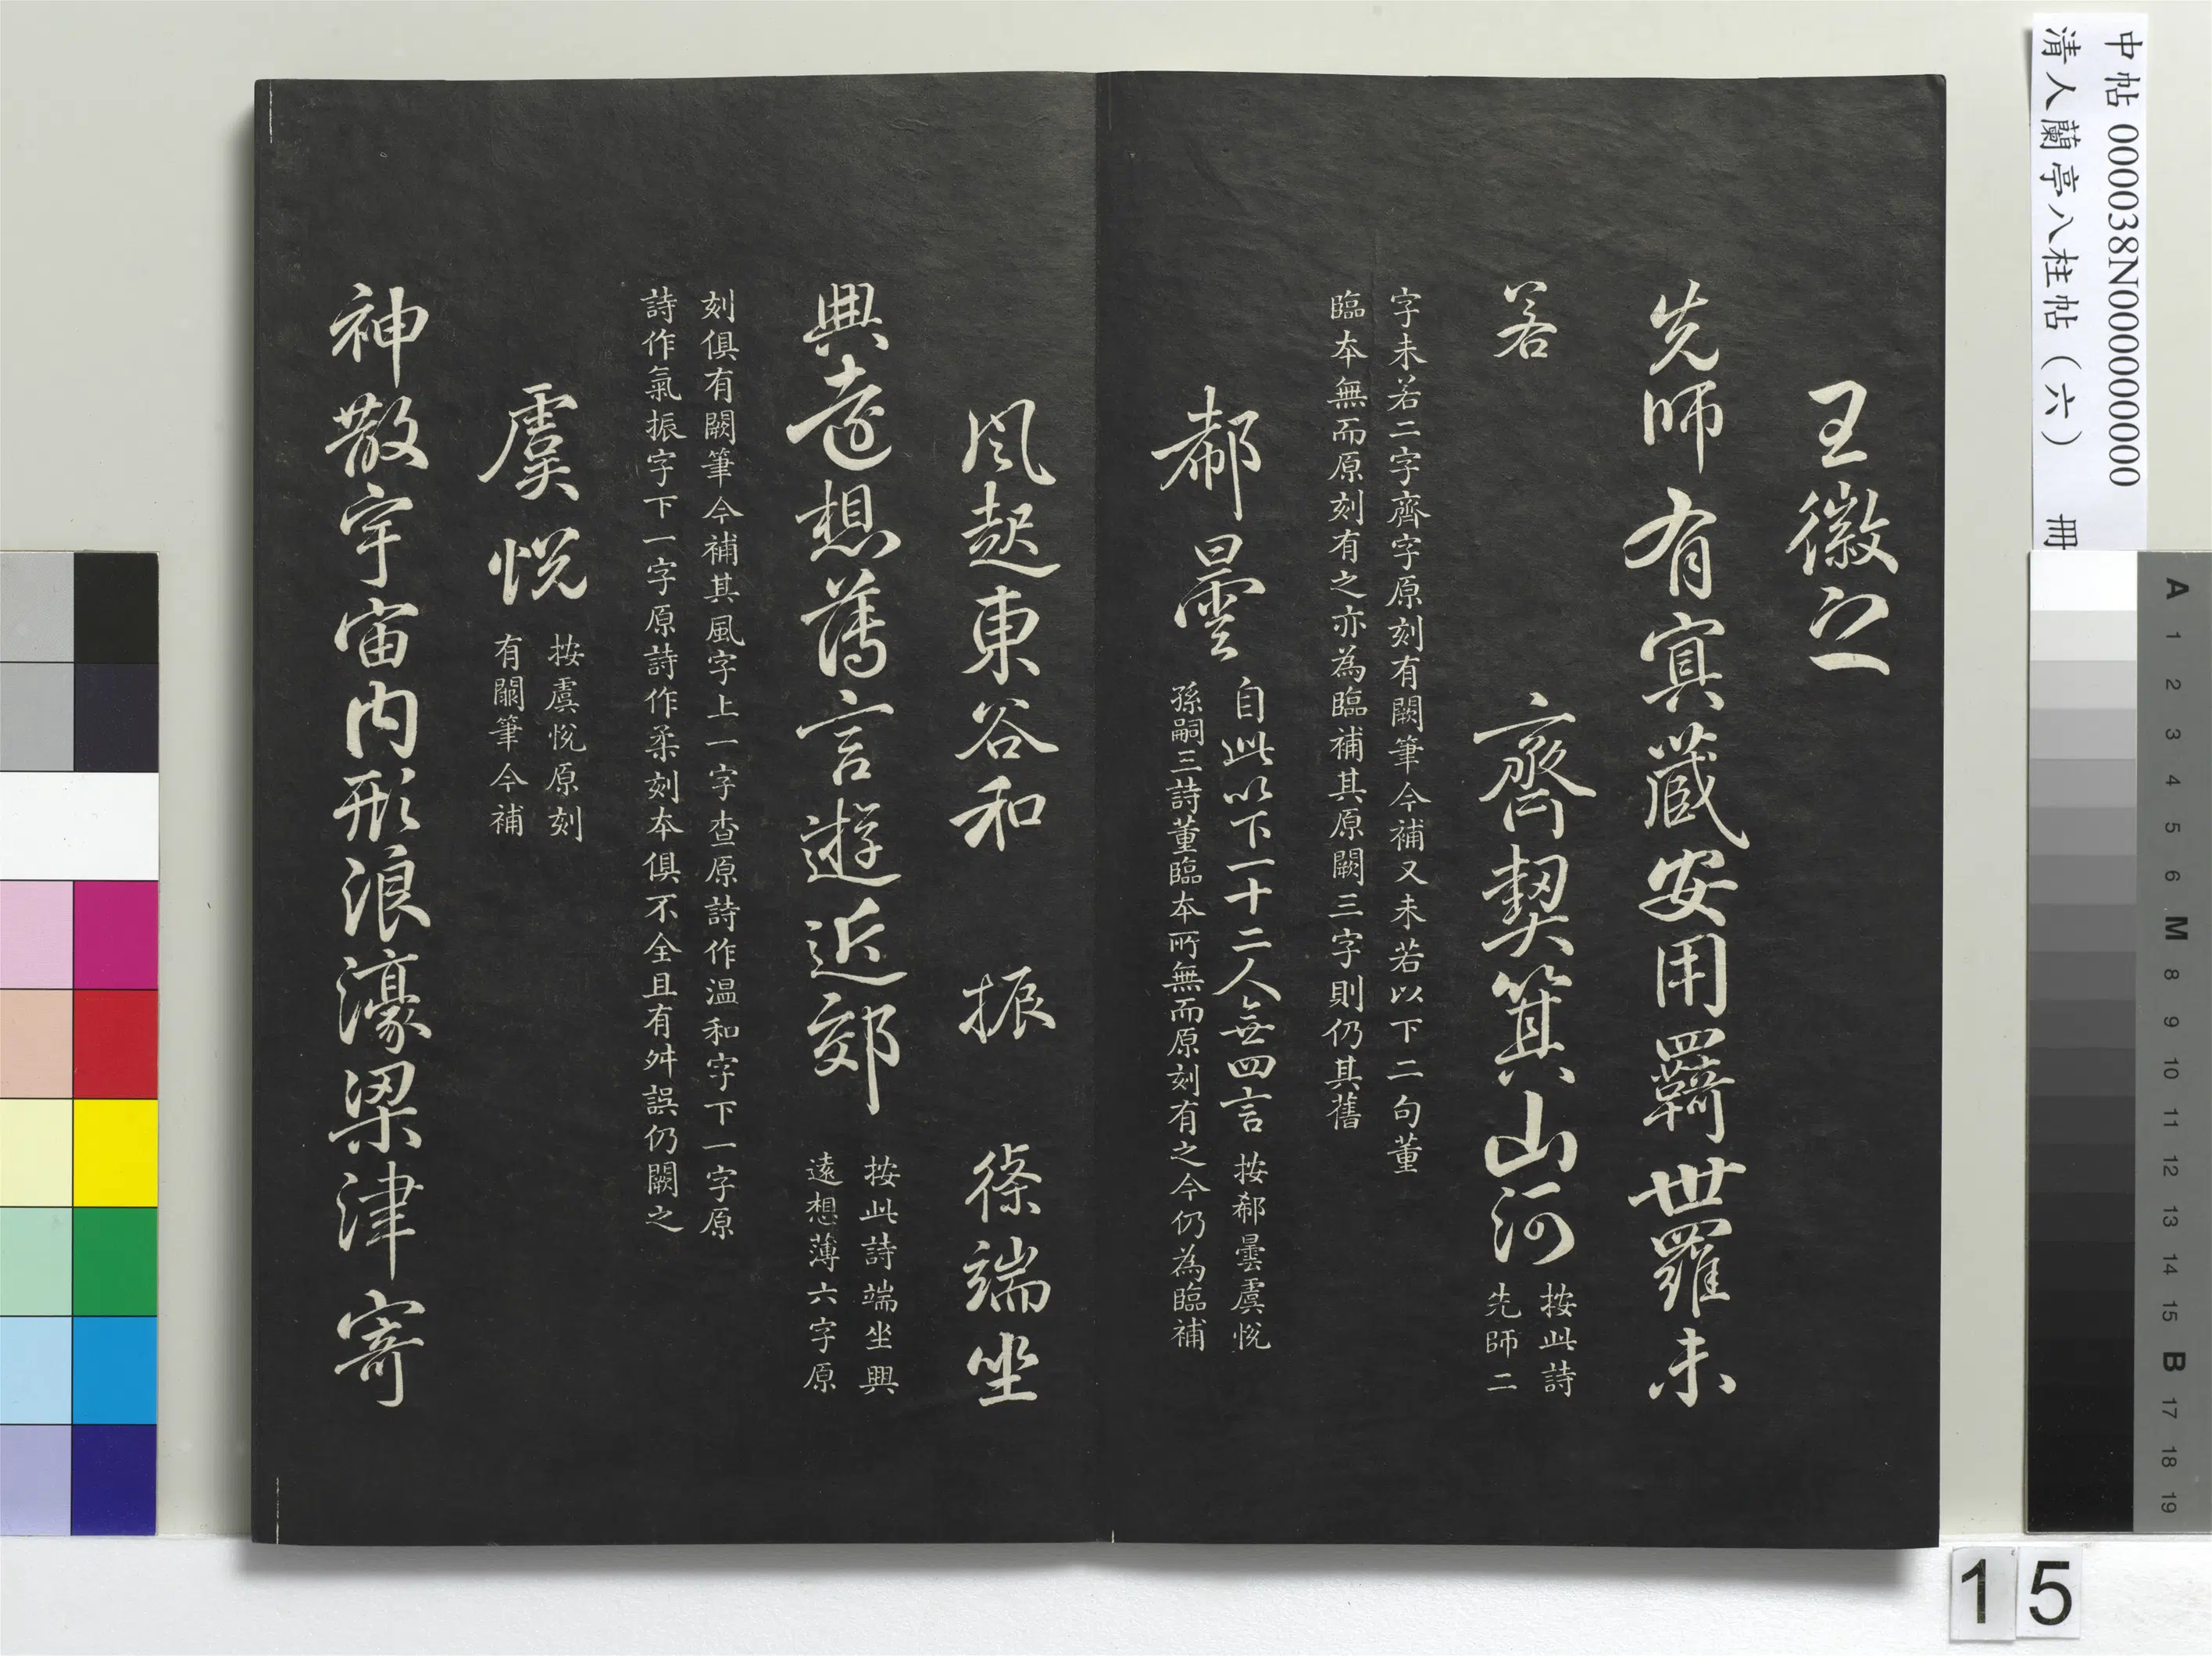 王徽之
先師有冥藏安用羈世羅未
若　齊契箕山河　按此詩
先師二
字未若二字齊字原刻有闕筆今補又未若以下二句董
臨本無而原刻有之亦為臨補其原闕三字則仍其舊
郗曇　自此以下一十二人無四言　按郗曇虞悅
孫嗣三詩董臨本所無而原刻有之今仍為臨補
風起東谷和　振　條端坐
興遠想薄言遊近郊　按此詩端坐興
遠想薄六字原
刻俱有闕筆今補其風字上一字查原詩作溫和字下一字原
詩作氣振字下一字原詩作柔刻本俱不全且有舛誤仍闕之
虞悅　按虞悅原刻
有闕筆今補
神散宇宙內形浪濠梁津寄
中帖 000038N000000000
清人蘭亭八柱帖（六）　冊
A 1 2 3 4 5 6 M 8 9 10 11 12 13 14 15 B 17 18 19
15